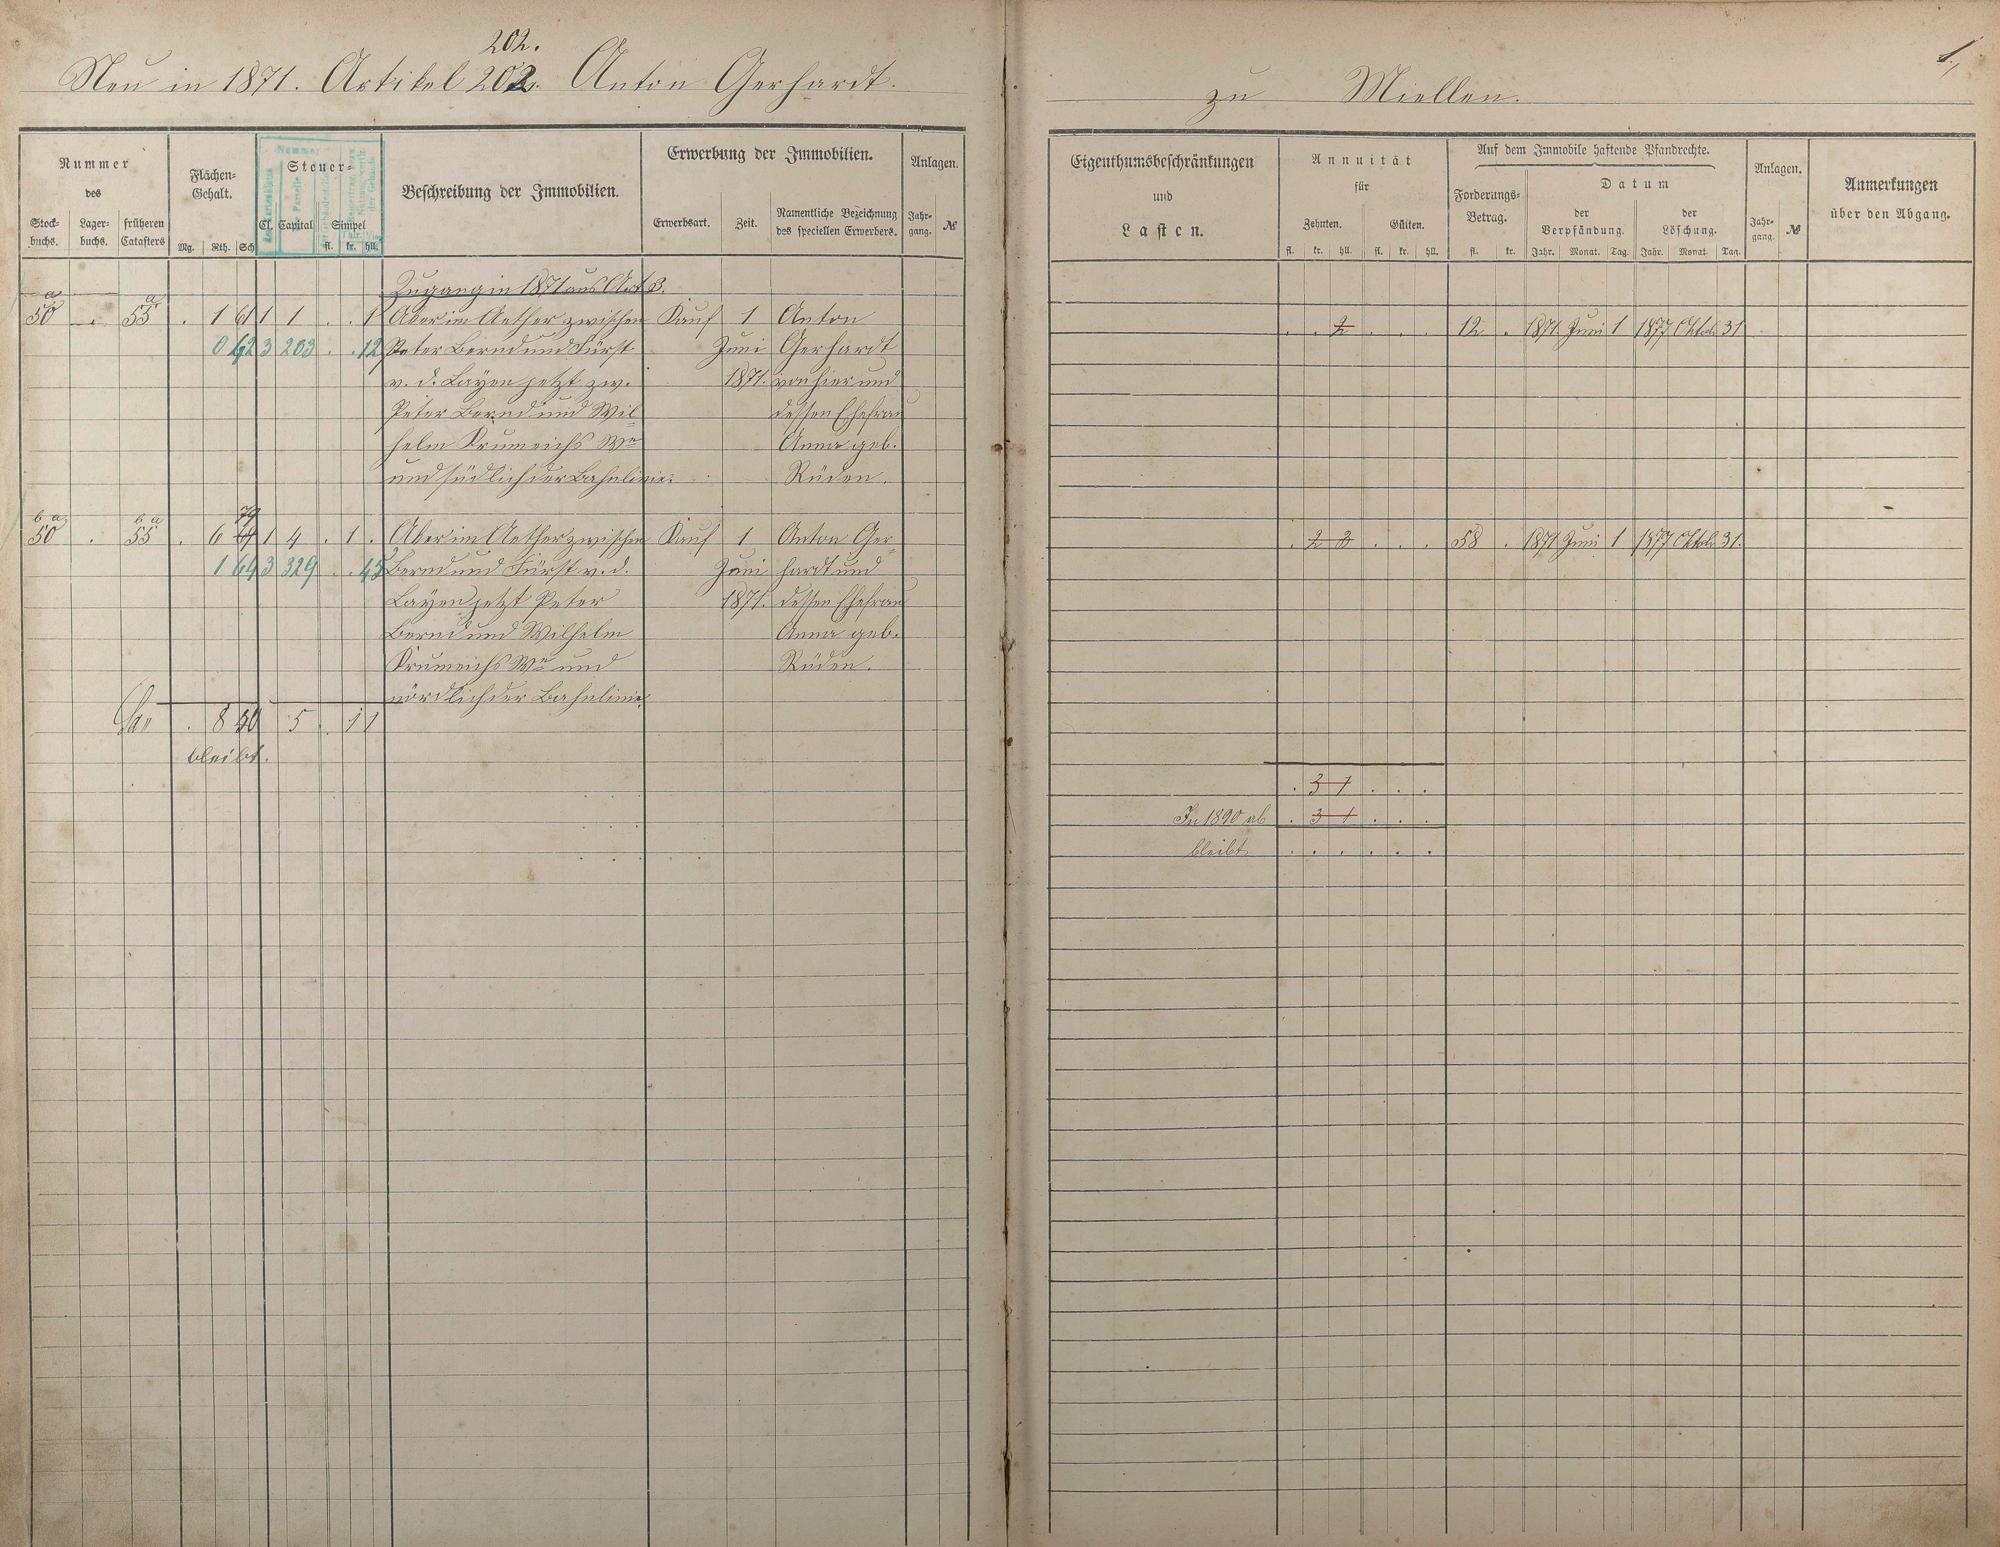 202.
Neu in 1871. Artikel 202. Anton Gerhardt.
Nummer
des
Stock-
buchs.
Lager-
buchs.
früheren
Catasters
Flächen-
Gehalt.
Mg. Rth. Sch
Steuer-
Cl. Capital Simpel
fl. kr. hll.
Beschreibung der Immobilien.
Erwerbung der Immobilien.
Erwerbsart. Zeit. Namentliche Bezeichnung
des speciellen Erwerbers.
Anlagen.
Jahr-
gang. №
Zugang in 1871 aus Art 3.
a a
50 . 55 . 1 61 1 1 . . 1 Aker im Aether zwischen Kauf 1 Anton
0 42 3 203 . . 12 Peter Bernd und Fürst Juni Gerhardt
v. d. Layen jetzt zw. 1871. von hier und
Peter Bernd und Wil- dessen Ehefrau
helm Krumeichs Wwe Anna geb.
und südlich der Bahnlinie. Rüden.
b a b a 79
50 . 55 . 6 1 4 . 1 . Aker im Aether zwischen Kauf 1 Anton Ger-
1 64 3 329 . . 45 Bernd und Fürst v. d. Juni hardt und
Layen jetzt Peter 1871. dessen Ehefrau
Bernd und Wilhelm Anna geb.
Krumeichs Wwe und Rüden.
nördlich der Bahnlinie.
Sa . 8 40 5 . 1 1
bleibt.
1.
zu Miellen.
Eigenthumsbeschränkungen
und
Lasten.
Annuität
für
Zehnten. Gülten.
fl. kr. hll. fl. kr. hll.
Auf dem Immobile haftende Pfandrechte.
Forderungs-
Betrag.
fl. kr.
Datum
der
Verpfändung.
Jahr. Monat. Tag.
der
Löschung.
Jahr. Monat Tag.
Anlagen.
Jahr-
gang. №
Anmerkungen
über den Abgang.
. . 2 . . . 12 . 1871 Juni 1 1877 Oktob. 31
. 2 3 . . . 58 . 1871 Juni 1 1877 Oktob. 31.
. 3 1 . . .
In 1890 ab . 3 1 . . .
bleibt . . . . . .